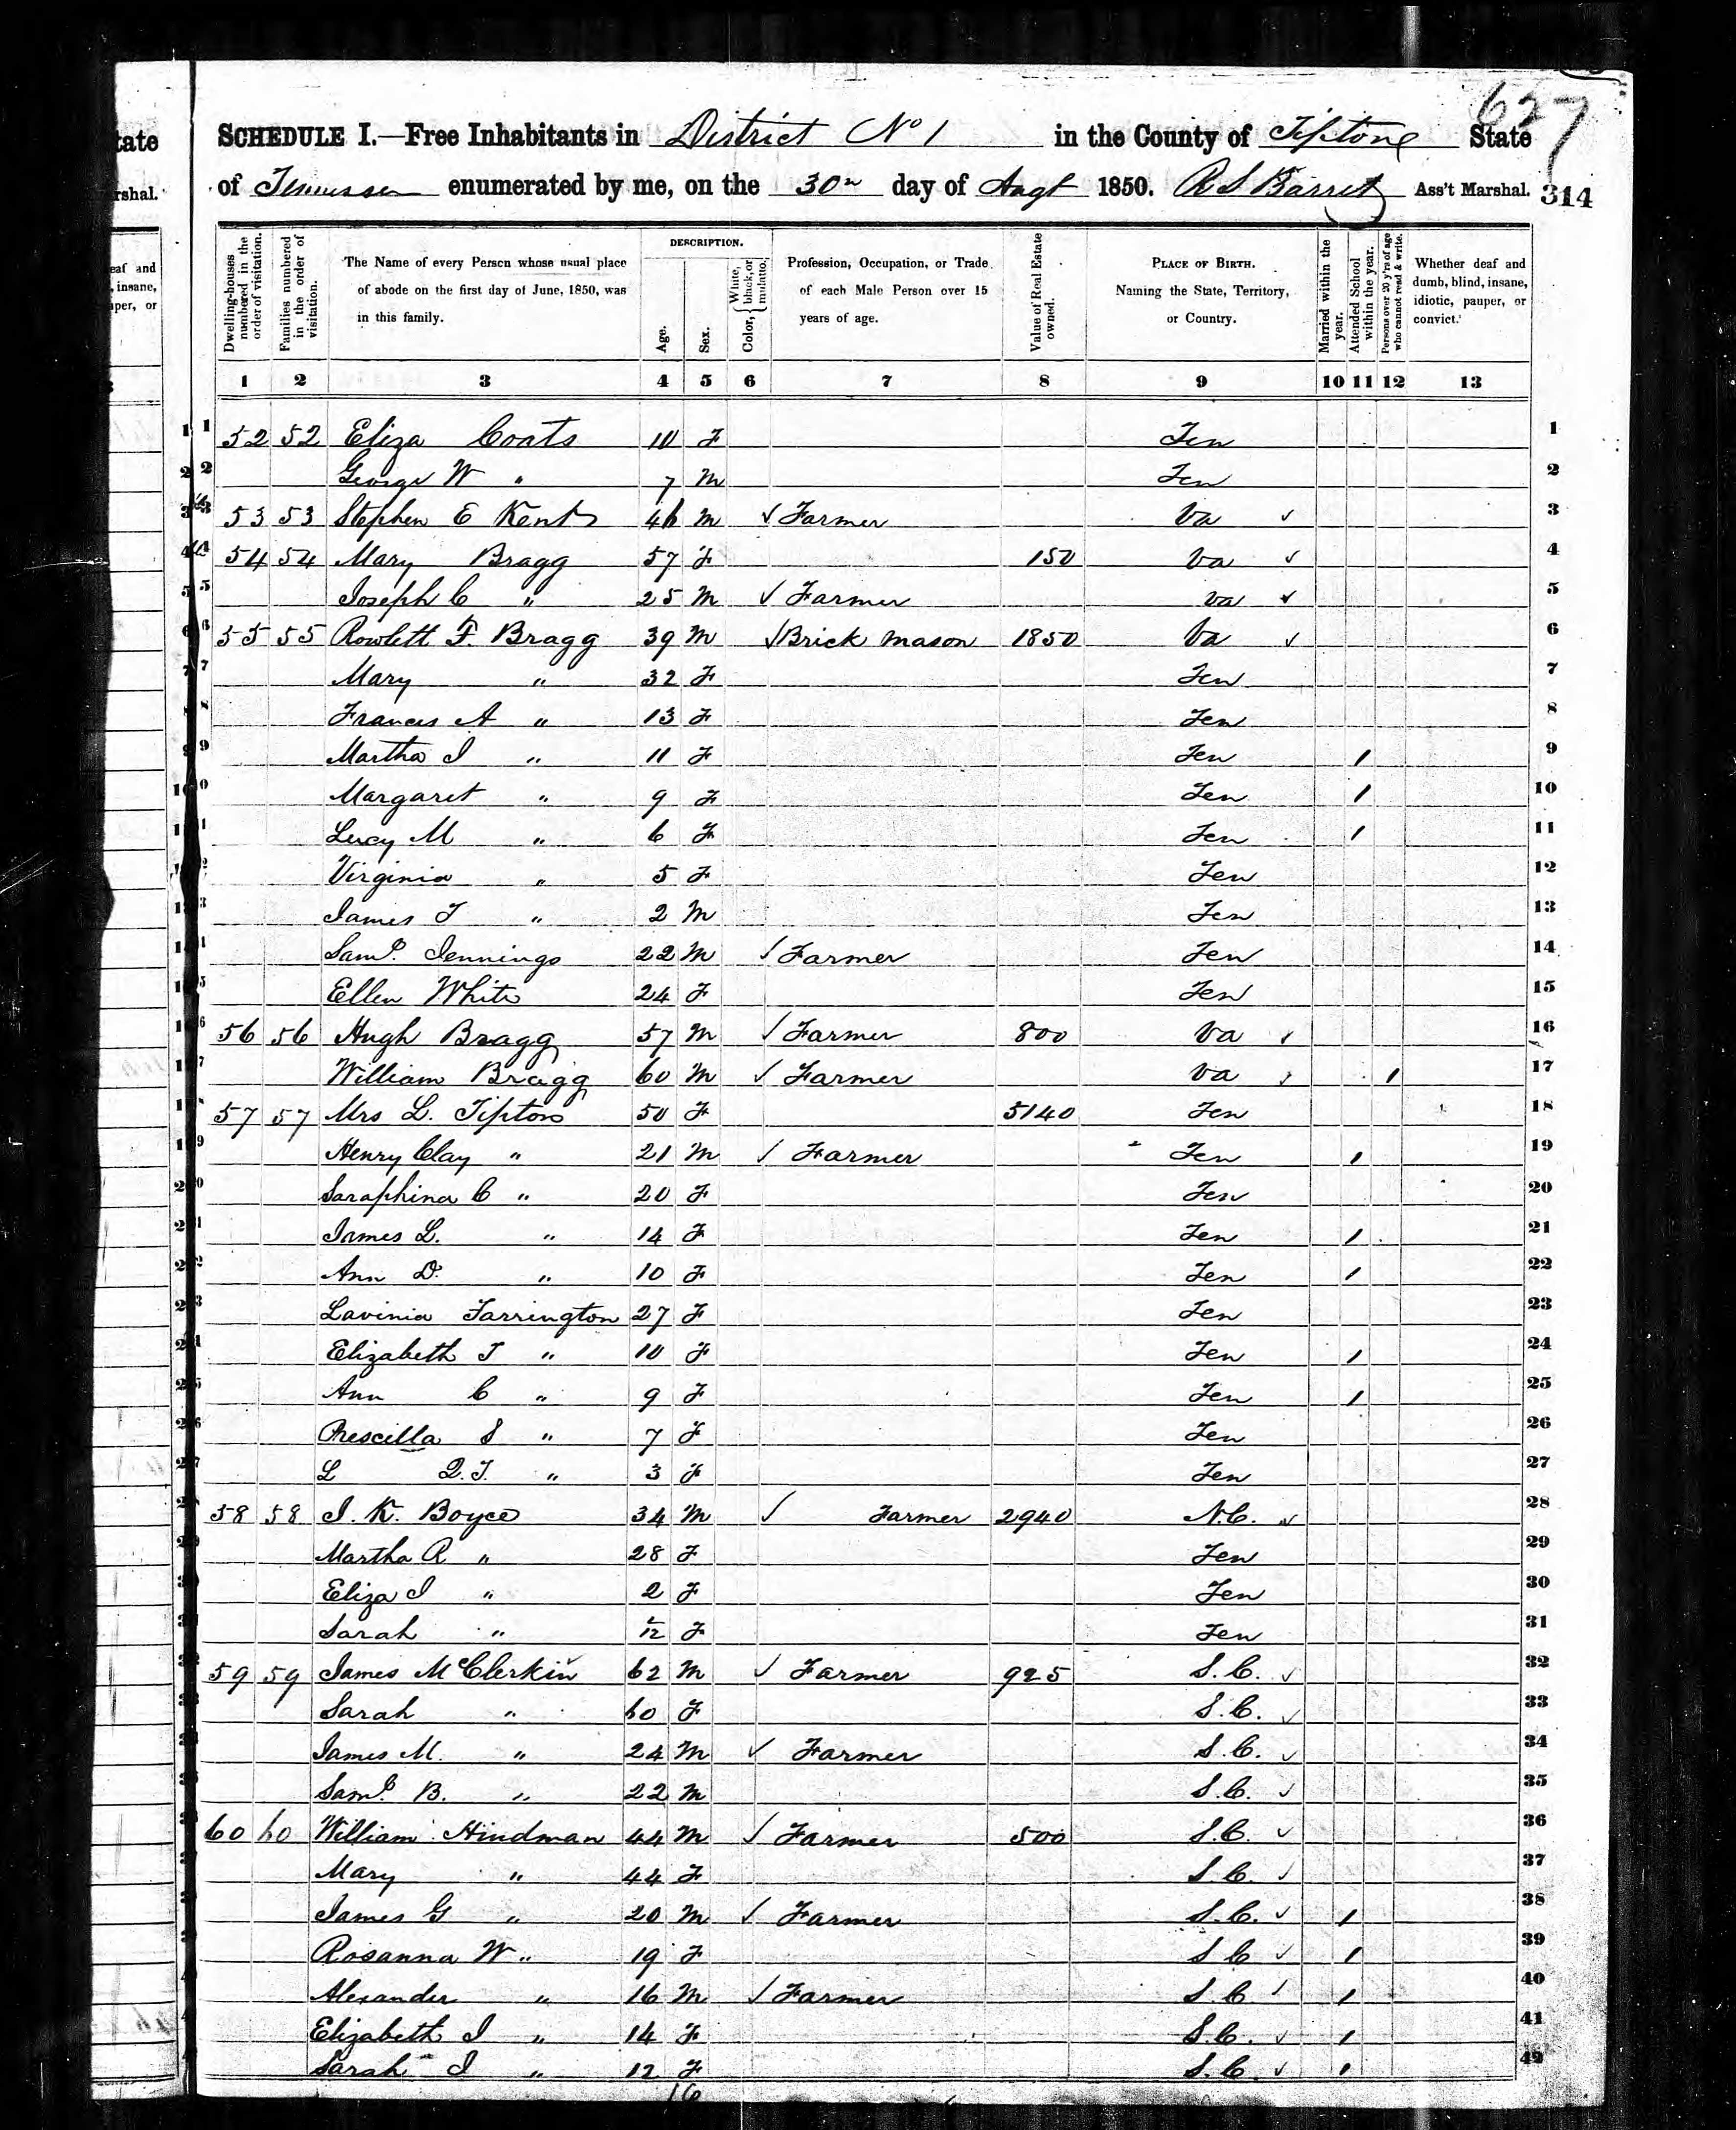 tate
rshal.
eaf and
, insane,
iper, or
627
SCHEDULE I.—Free Inhabitants in District No 1 in the County of Tipton State
of Tennessee enumerated by me, on the 30 day of Augt 1850. R S Barret Ass't Marshal. 314
Dwelling-houses numbered in the order of visitation.
Families numbered in the order of visitation.
The Name of every Person whose usual place of abode on the first day of June, 1850, was in this family.
DESCRIPTION.
Age.
Sex.
Color, { White, black, or mulatto.
Profession, Occupation, or Trade of each Male Person over 15 years of age.
Value of Real Estate owned.
PLACE OF BIRTH. Naming the State, Territory, or Country.
Married within the year.
Attended School within the year.
Persons over 20 y'rs of age who cannot read & write.
Whether deaf and dumb, blind, insane, idiotic, pauper, or convict.
1 2 3 4 5 6 7 8 9 10 11 12 13
1 52 52 Eliza Coats 10 F Ten 1
2 George W " 7 M Ten 2
3 53 53 Stephen E Kent 46 M ✓ Farmer Va ✓ 3
4 54 54 Mary Bragg 57 F 150 Va ✓ 4
5 Joseph C " 25 M ✓ Farmer Va ✓ 5
6 55 55 Rowlett F. Bragg 39 M ✓ Brick mason 1850 Va ✓ 6
7 Mary " 32 F Ten 7
8 Frances A " 13 F Ten 8
9 Martha J " 11 F Ten 1 9
10 Margaret " 9 F Ten 1 10
11 Lucy M " 6 F Ten 1 11
12 Virginia " 5 F Ten 12
13 James T " 2 M Ten 13
14 Saml. Jennings 22 M ✓ Farmer Ten 14
15 Ellen White 24 F Ten 15
16 56 56 Hugh Bragg 57 M ✓ Farmer 800 Va ✓ 16
17 William Bragg 60 M ✓ Farmer Va ✓ 1 17
18 57 57 Mrs L. Tipton 50 F 5140 Ten 18
19 Henry Clay " 21 M ✓ Farmer Ten 1 19
20 Saraphina C " 20 F Ten 20
21 James L. " 14 F Ten 1 21
22 Ann D. " 10 F Ten 1 22
23 Lavinia Farrington 27 F Ten 23
24 Elizabeth T " 10 F Ten 1 24
25 Ann C " 9 F Ten 1 25
26 Prescilla S " 7 F Ten 26
27 L Q.T. " 3 F Ten 27
58 58 J. K. Boyce 34 M ✓ Farmer 2940 N.C. ✓ 28
Martha R " 28 F Ten 29
Eliza J " 2 F Ten 30
Sarah " /12 F Ten 31
59 59 James McClerkin 62 M ✓ Farmer 925 S.C. ✓ 32
Sarah " 60 F S.C. ✓ 33
James M. " 24 M ✓ Farmer S.C. ✓ 34
Saml. B. " 22 M S.C. ✓ 35
60 60 William Hindman 44 M ✓ Farmer 500 S.C. ✓ 36
Mary " 44 F S.C. ✓ 37
James G " 20 M ✓ Farmer S.C. ✓ 1 38
Rosanna W " 19 F S C ✓ 1 39
Alexander " 16 M ✓ Farmer S.C. ✓ 1 40
Elizabeth J " 14 F S.C. ✓ 1 41
Sarah J " 12 F S.C. ✓ 1 42
16